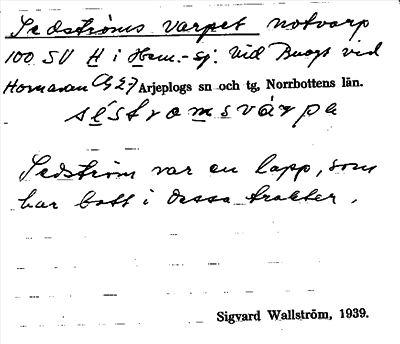 Sedströms varpet notvarp
100 SV H i Horn.-sj. Vid Buogt vid
Hornavan C9 27 Arjeplogs sn och tg, Norrbottens län.
séstromsvárpa
Sedström var en lapp, som
har bott i dessa trakter.
Sigvard Wallström, 1939.